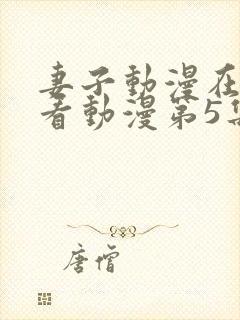 妻子動漫在
看動漫第5集
唐僧